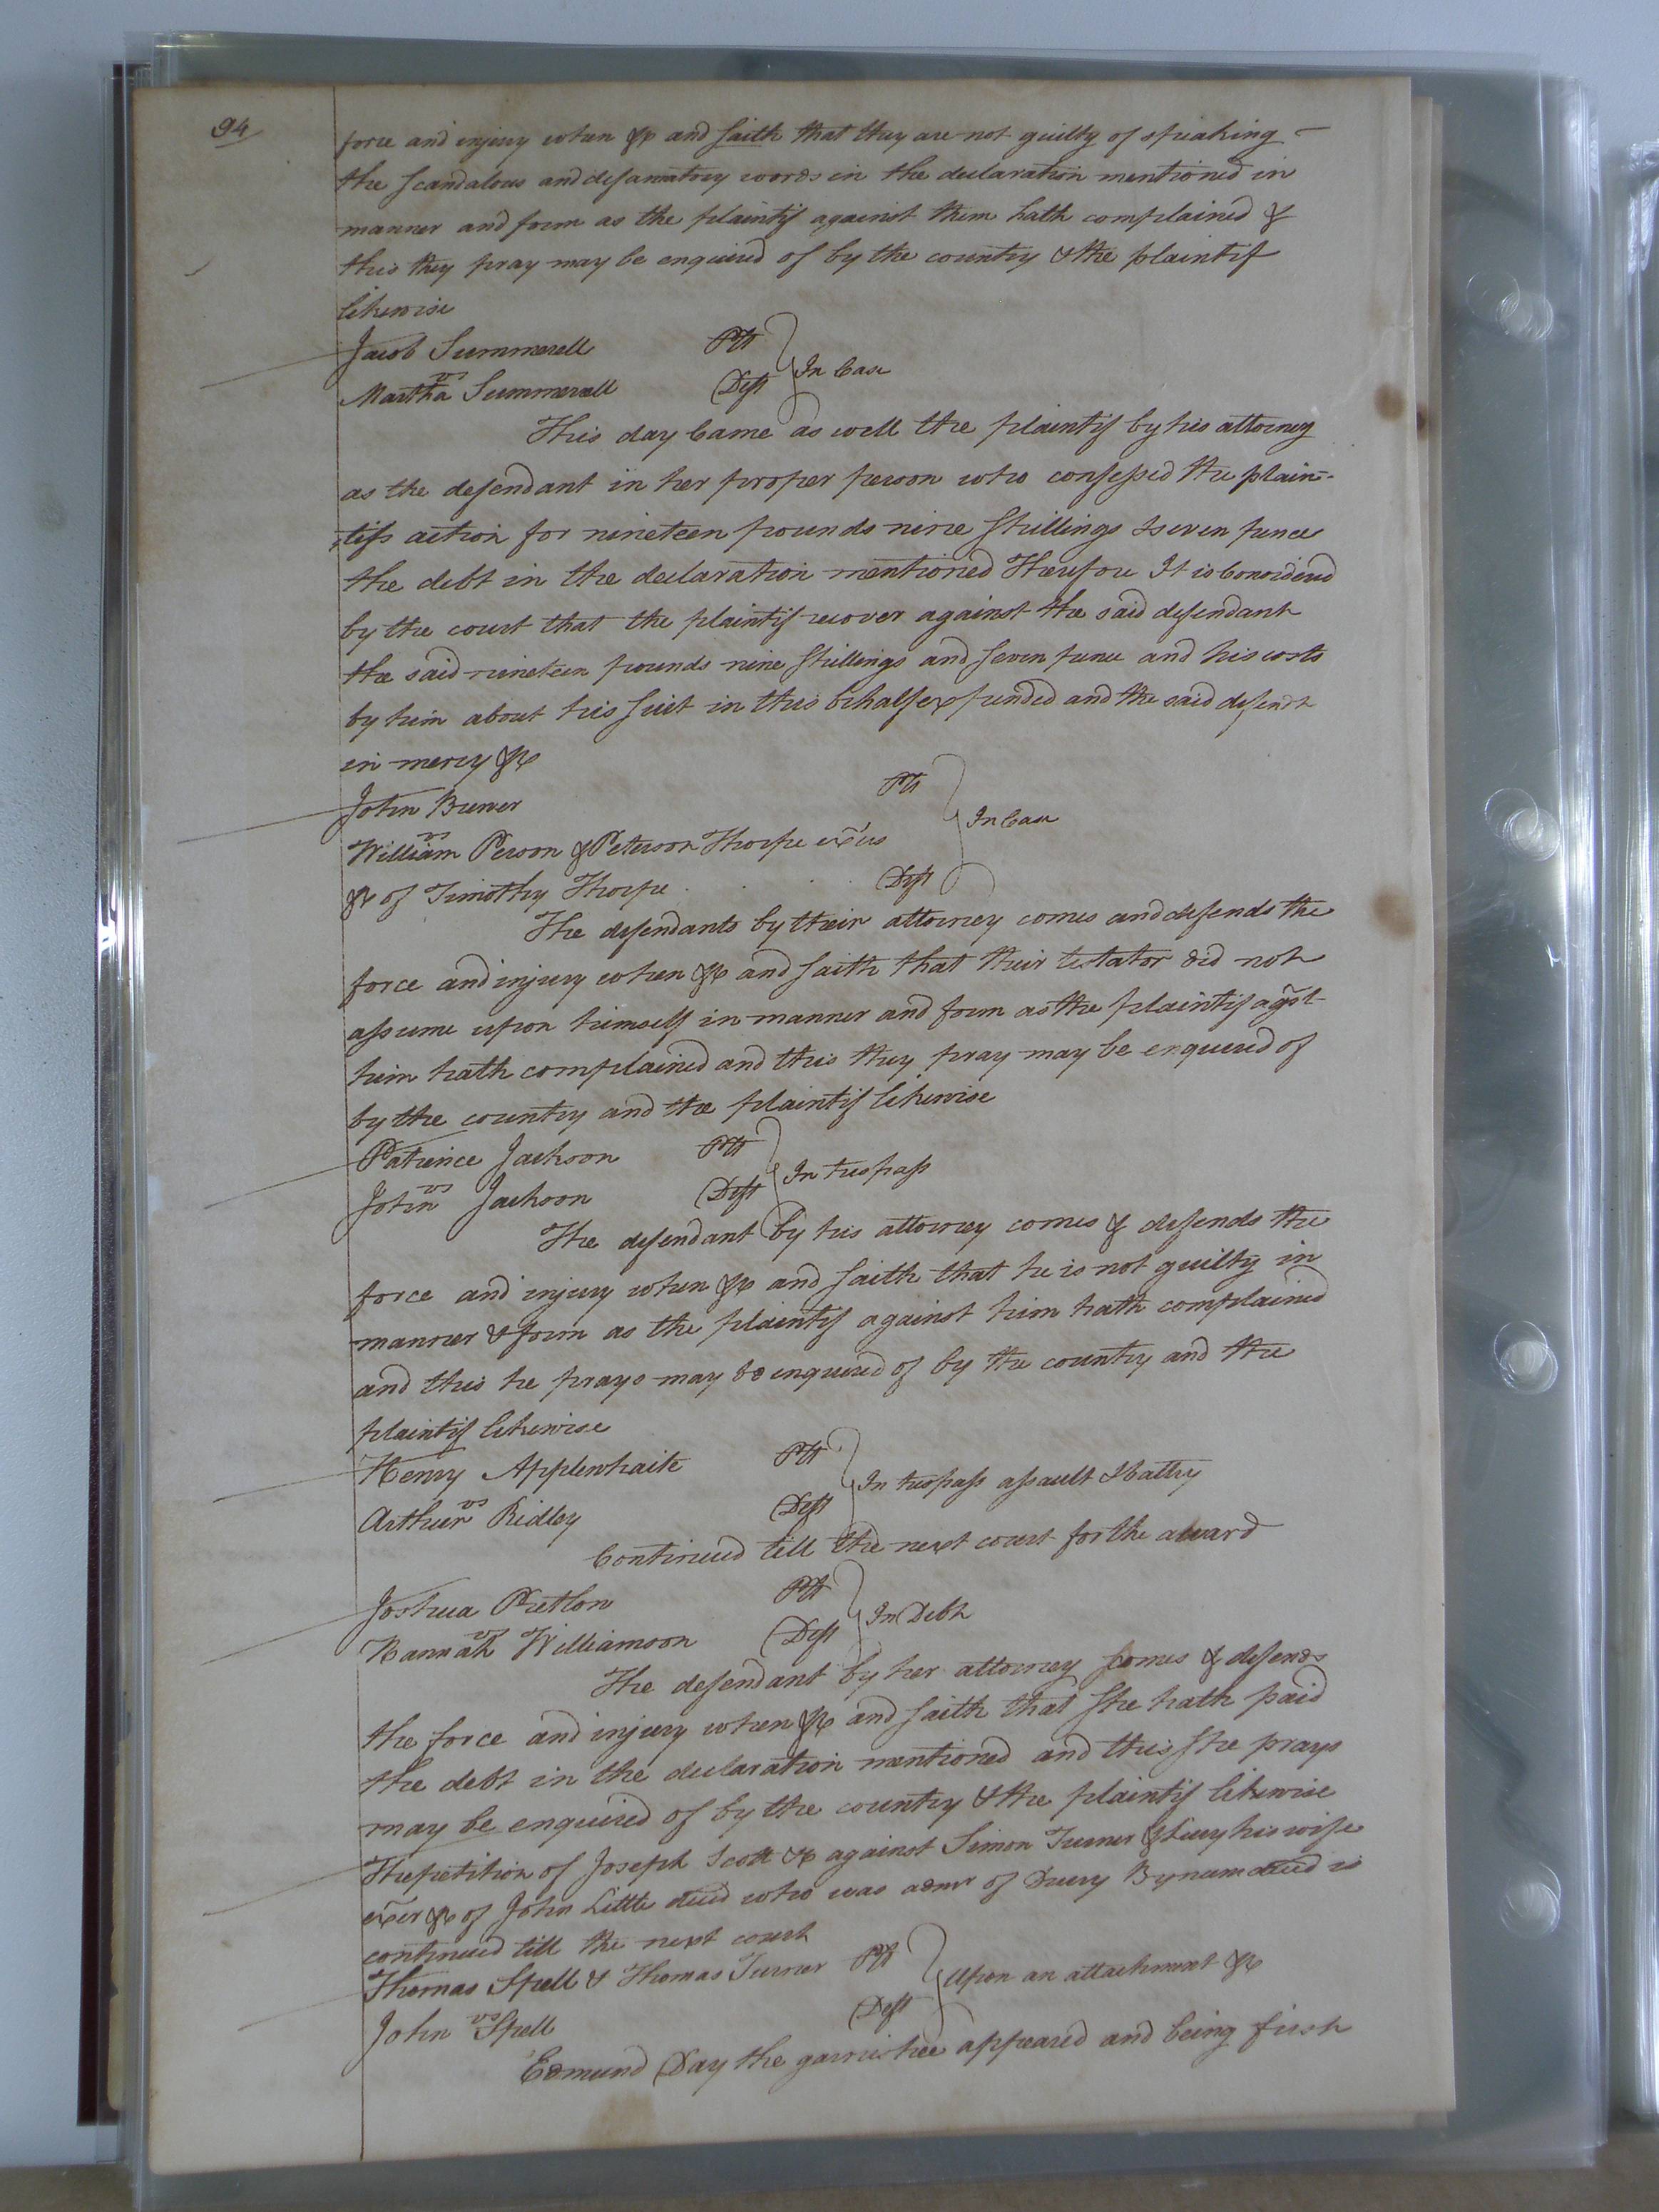 94
force and injury when &c and saith that they are not guilty of speaking
the scandalous and defamatory words in the declaration mentioned in
manner and form as the plaintif against them hath complained &
this they pray may be enquired of by the country & the plaintif
likewise
Jacob Summerell Plt
vs In Case
Martha Summerell Deft
This day Came as well the plaintif by his attorney
as the defendant in her proper person who confessed the plain-
tifs action for nineteen pounds nine Shillings & seven pence
the debt in the declaration mentioned Therefore It is Considered
by the court that the plaintif recover against the said defendant
the said nineteen pounds nine Shillings and seven pence and his costs
by him about his suit in this behalf expended and the said defendt
in mercy &c
John Bruner Plt
vs In Case
William Person & Peterson Thorpe exõrs
&c of Timothy Thorpe Deft
The defendants by their attorney comes and defends the
force and injury when &c and saith that their testator did not
assume upon himself in manner and form as the plaintif agst
him hath complained and this they pray may be enquired of
by the country and the plaintif likewise
Patience Jackson Plt
vs In trespass
John Jackson Deft
The defendant by his attorney comes & defends the
force and injury when &c and saith that he is not guilty in
manner & form as the plaintif against him hath complained
and this he prays may be enquired of by the country and the
plaintif likewise
Henry Applewhaite Plt
vs In trespass assault & battry
Arthur Ridley Deft
Continued till the next court for the award
Joshua Pretlon Plt
vs In Debt
Hannah Williamson Deft
The defendant by her attorney comes & defends
the force and injury when &c and saith that she hath paid
the debt in the declaration mentioned and this she prays
may be enquired of by the country & the plaintif likewise
The petition of Joseph Scott &c against Simon Turner & Lucy his wife
exer &c of John Little decd who was admr of Drury Bynum decd is
continued till the next court
Thomas Spell & Thomas Turner Plt
vs Upon an attachment &c
John Spell Deft
Edmund Day the garnishee appeared and being first